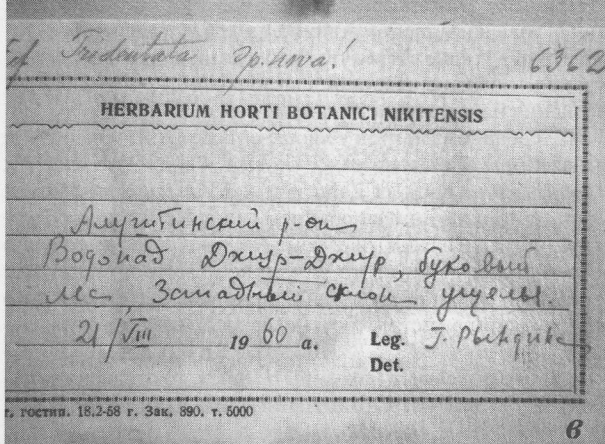 Tridentata sp. nova! 6362
HERBARIUM HORTI BOTANICI NIKITENSIS
Алуштинский р-он
Водопад Джур-Джур, буковый
лес Западный склон ущелья.
21/VIII 1960 a. Leg. Г. Рындина
Det.
г. гостип. 18.2-58 г. Зак. 890. т. 5000
в